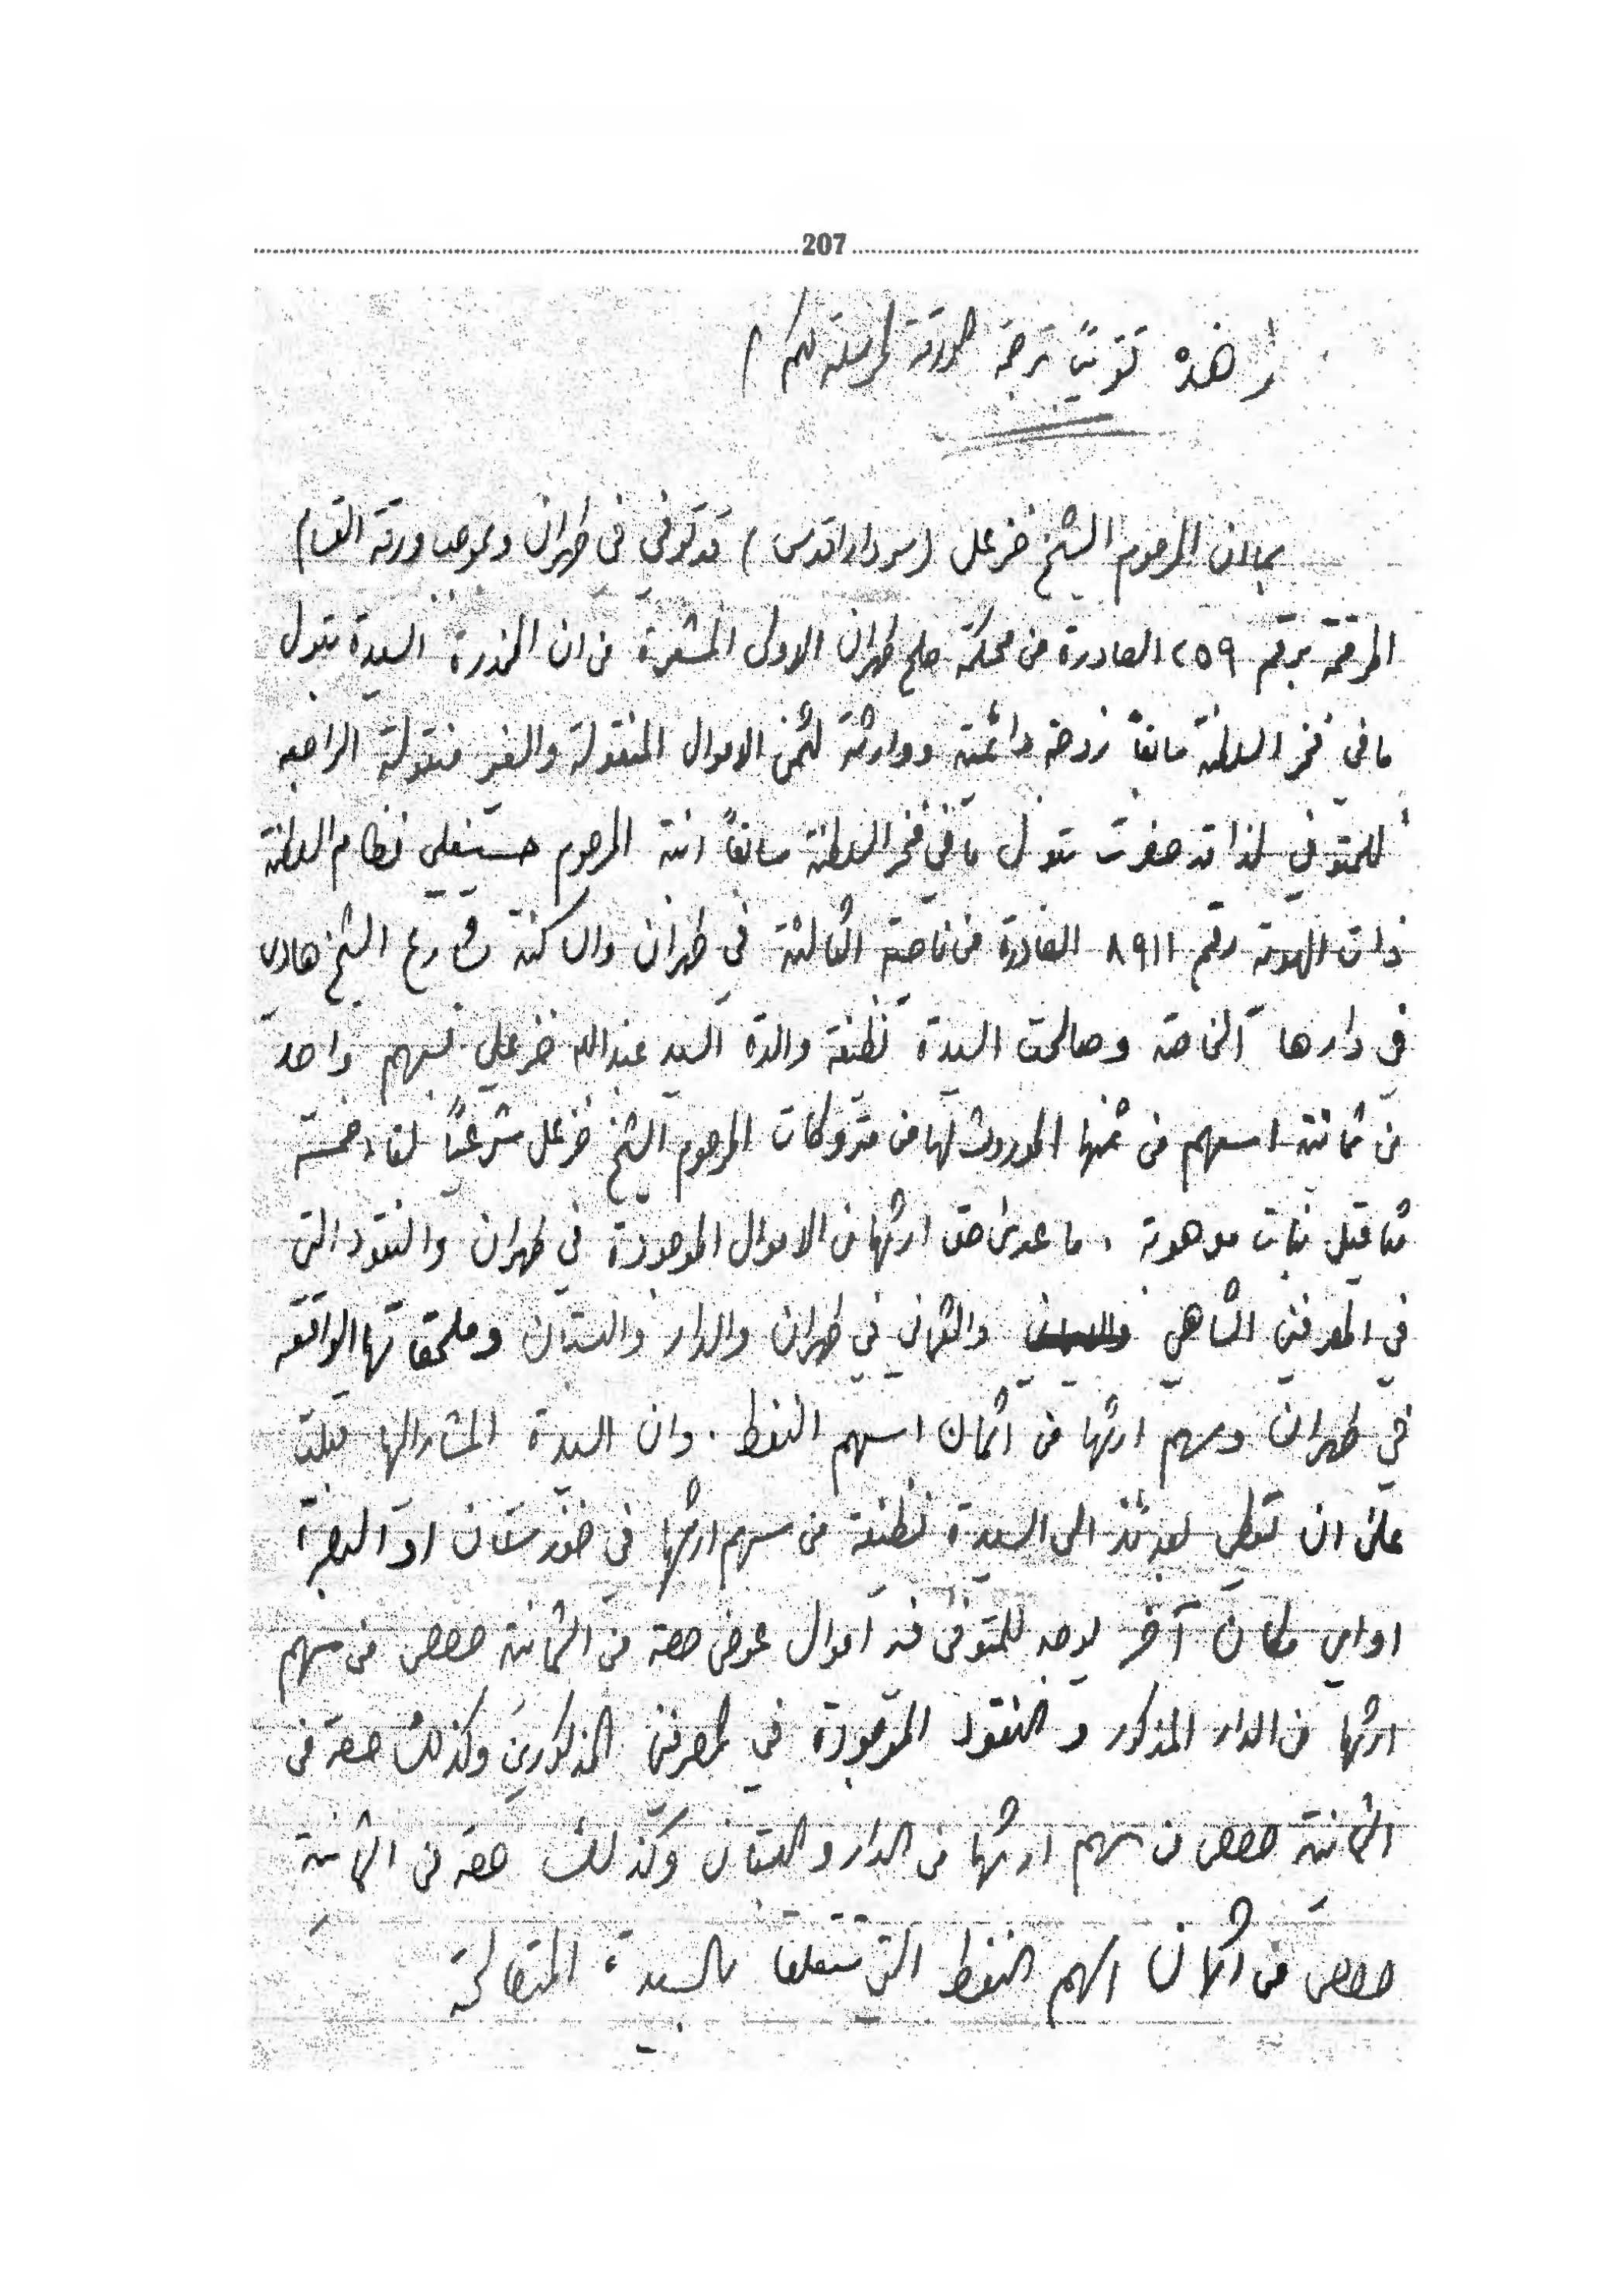 207
هذه تقريباً ترجمة الورقة المرسلة لكم
بما ان المرحوم الشيخ خزعل (سردار اقدس) قد توفى فى طهران وبموجب ورقة القسام
المرقمة برقم ٢٥٩ الصادرة من محكمة صلح طهران الاولى المشعرة من ان المخدرة السيدة بتول
مافى فخر السلطنة سابقاً زوجة دائمية ووارثة لثمن الاموال المنقولة والغير منقولة الراجعه
للمتوفى لذا قد حضرت بتول مافى فخر السلطنة سابقاً ابنة المرحوم حسينقلي نظام السلطنة
ذات الهوية رقم ٨٩١١ الصادرة من ناحية الثالثة في طهران والساكنة شارع الشيخ هادى
فى دارها الخاصة وصالحت السيدة نظيفة والدة السيد عبدالله خزعلي بسهم واحد
من ثمانية اسهم من ثمنها الموروث لها من متروكات المرحوم الشيخ خزعل شرعياً لقاء خمسة
مثاقيل نبات موهوبة ، ما عدى حق ارثها من الاموال الموجودة في طهران والنقود التي
في المصرفين الشاهي والعثماني في طهران والدار والبستان وملحقاتها الواقعه
في طهران وسهم ارثها من اثمان اسهم النفط . وان السيدة المشار اليها قبلت
على ان تعطي بعدئذ الى السيدة نظيفة من سهم ارثها في خوزستان او البصرة
او اي مكان آخر يوجد للمتوفى فيه اموال عوض حصة من الثمانية حصص من سهم
ارثها من الدار المذكور و النقود الموجودة في المصرفين المذكورين وكذلك حصة من
الثمانية حصص من سهم ارثها من الدار و البستان وكذلك حصة من الثمانية
حصص من اثمان اسهم النفط التي تتعلق بالسيدة المتصالحة